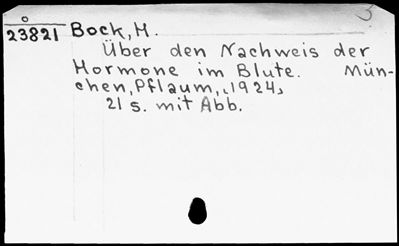 o
23821 Bock, H.
Über den Nachweis der
Hormone im Blute. Mün-
chen, Pflaum, (1924)
21 S. mit Abb.